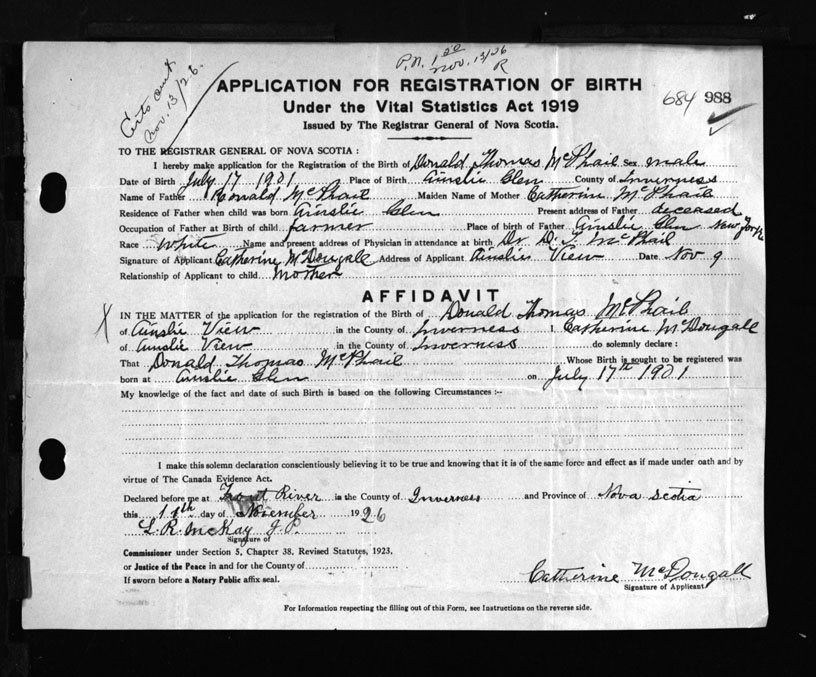 Certs out
Nov. 13/26.
P.N. 1 00
Nov. 13/26
R
APPLICATION FOR REGISTRATION OF BIRTH
684 988
Under the Vital Statistics Act 1919
Issued by The Registrar General of Nova Scotia.
TO THE REGISTRAR GENERAL OF NOVA SCOTIA :
I hereby make application for the Registration of the Birth of Donald Thomas McPhail Sex male
Date of Birth July 17 1901 Place of Birth Ainslie Glen County of Inverness
Name of Father Ronald McPhail Maiden Name of Mother Catherine McPhail
Residence of Father when child was born Ainslie Glen Present address of Father deceased
Occupation of Father at Birth of child farmer Place of birth of Father Ainslie Glen New York
Race White Name and present address of Physician in attendance at birth Dr. D. McPhail
Signature of Applicant Catherine McDougall Address of Applicant Ainslie View Date Nov 9
Relationship of Applicant to child Mother
AFFIDAVIT
X IN THE MATTER of the application for the registration of the Birth of Donald Thomas McPhail
of Ainslie View in the County of Inverness I, Catherine McDougall
of Ainslie View in the County of Inverness do solemnly declare :
That Donald Thomas McPhail Whose Birth is sought to be registered was
born at Ainslie Glen on July 17th 1901
My knowledge of the fact and date of such Birth is based on the following Circumstances :--
I make this solemn declaration conscientiously believing it to be true and knowing that it is of the same force and effect as if made under oath and by
virtue of The Canada Evidence Act.
Declared before me at Trout River in the County of Inverness and Province of Nova Scotia
this 11th day of November 1926
L. R. McKay J.P.
Signature of
Commissioner under Section 5, Chapter 38, Revised Statutes, 1923,
or Justice of the Peace in and for the County of
If sworn before a Notary Public affix seal.
Catherine McDougall
Signature of Applicant
For Information respecting the filling out of this Form, see Instructions on the reverse side.